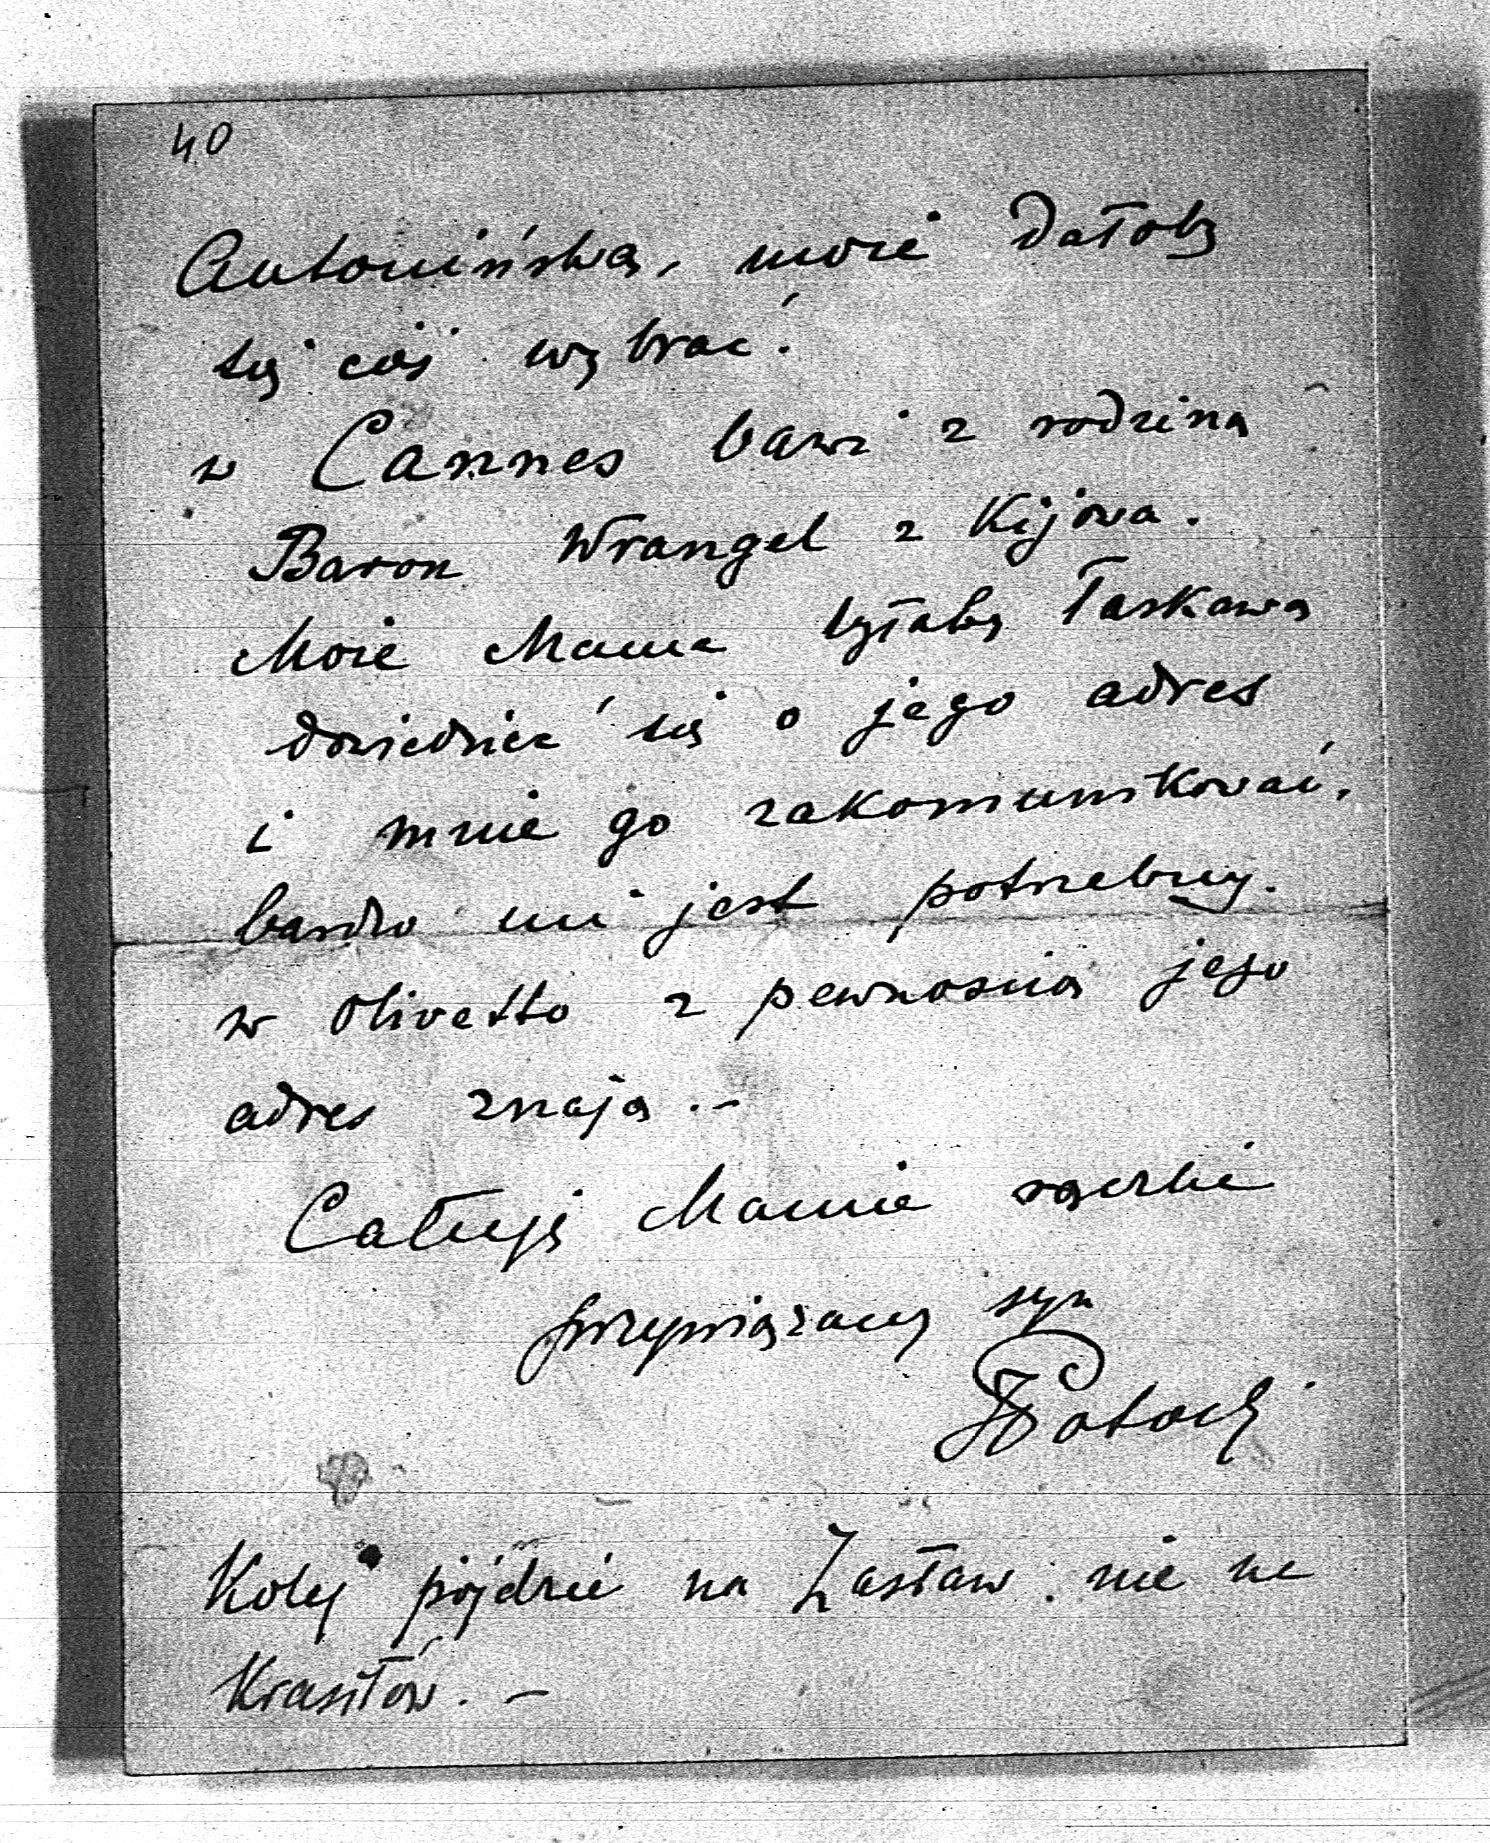 40
Antonińską, może dałoby
się coś wybrać.
w Cannes bawi z rodziną
Baron Wrangel z Kijowa.
Może Mama byłaby łaskawa
dowiedzieć się o jego adres
i mnie go zakomunikować,
bardzo mi jest potrzebny.
w Olivetto z pewnością jego
adres znają. –
Całuję Mamie rączki
przywiązany syn
JPotocki
Kolej pójdzie na Zasław. nie na
Krasiłów. –